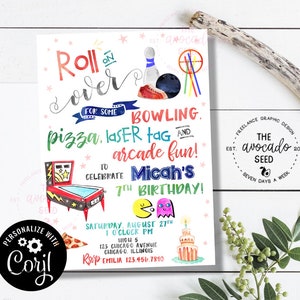 Roll on
over
FOR SOME
BOWLING,
pizza, laser tag AND
arcade fun!
TO
CELEBRATE Micah's
7TH BIRTHDAY!
SATURDAY AUGUST 27TH
1 O'CLOCK PM
HIGH 5
123 CHICAGO AVENUE
CHICAGO, ILLINOIS
RSVP EMILIA 123.456.7890
FREELANCE GRAPHIC DESIGN
THE
EST.
avocado
SEED
SEVEN DAYS A WEEK
PERSONALIZE WITH
Corjl